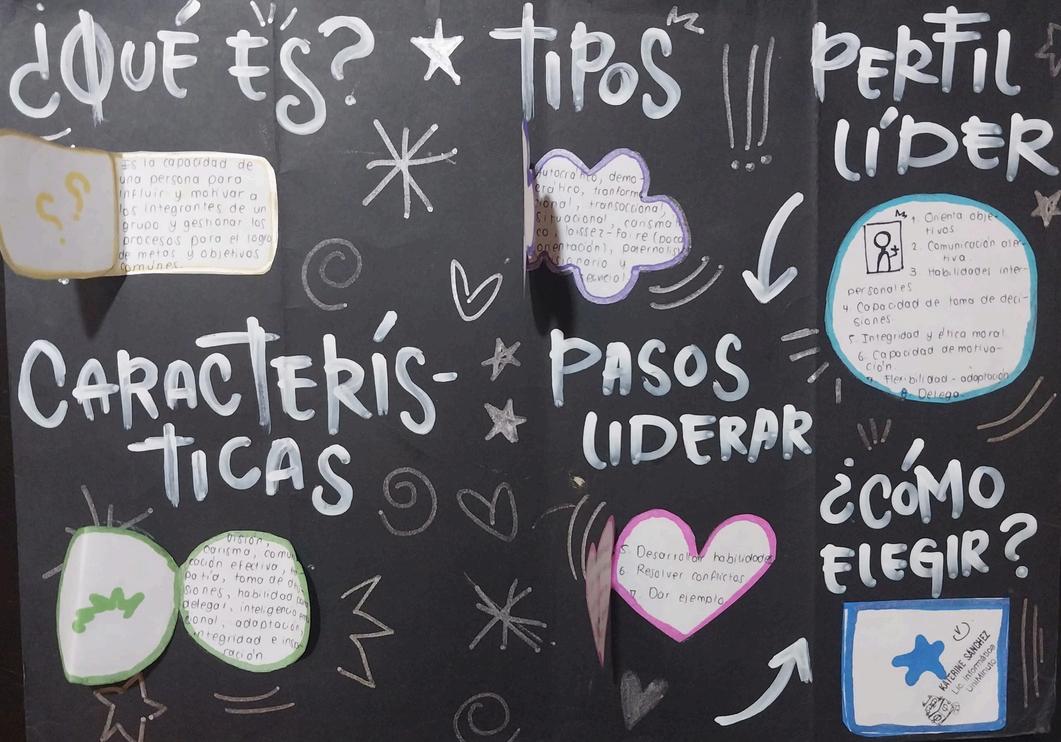 ¿QUÉ ES?
??
Es la capacidad de
una persona para
influir y motivar a
los integrantes de un
grupo y gestionar los
procesos para el logro
de metas y objetivos
comunes.
CARACTERÍS-
TICAS
Visión,
carisma, comuni
cación efectiva,
patía, toma de
siones, habilidad
delegar, inteligencia
onal, adaptación
integridad e inspi
ración
TIPOS
Autocrático, demo-
crático,
cional, transaccional,
situacional,
laissez-faire (poca
orientación),
y
PASOS
LIDERAR
5. Desarrollar habilidades
6. Resolver conflictos
7. Dar ejemplo
PERFIL
LÍDER
1. Orienta obje-
tivos
2. Comunicación
tiva.
3. Habilidades inter-
personales
4. Capacidad de toma de deci-
siones.
5. Integridad y ética moral.
6. Capacidad de motiva-
ción.
7. Flexibilidad - adaptación
8. Delega
¿CÓMO
ELEGIR?
KATERINE SANCHEZ
Lic. Informática
UniMinuto